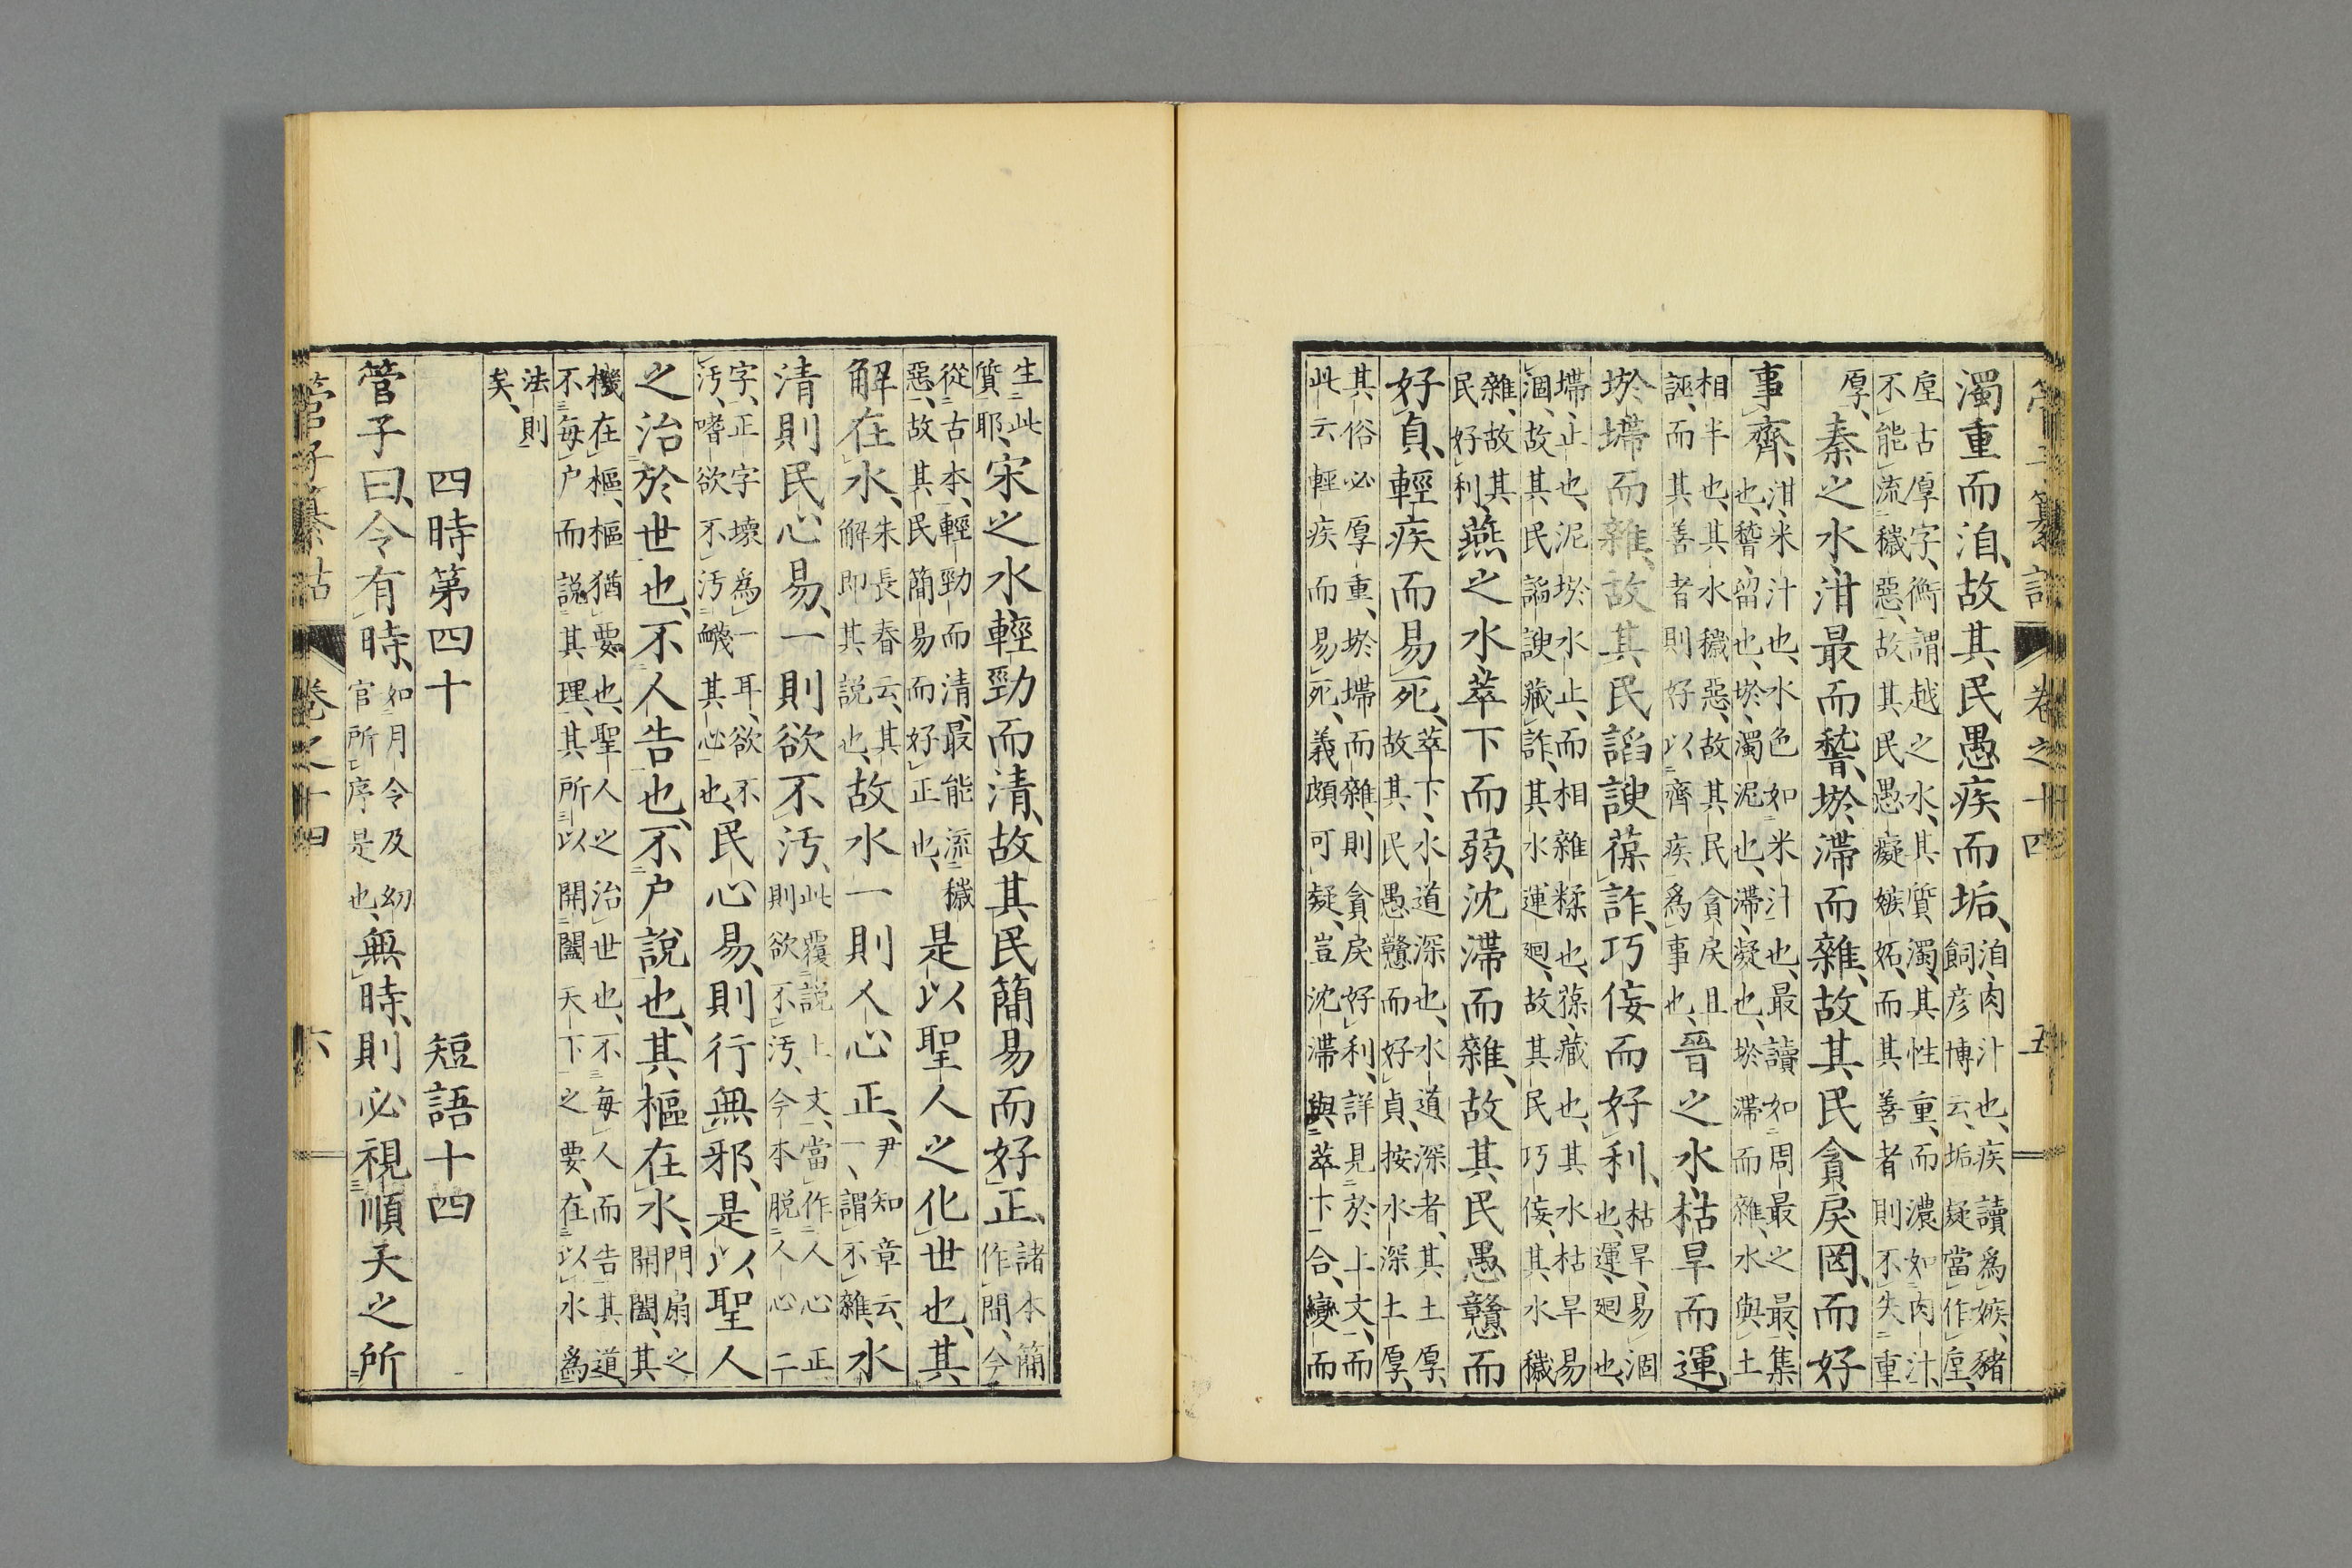 管子纂詁 卷之十四 五
濁重而洎、故其民愚疾而垢、洎、肉汁也、疾讀爲嫉、豬飼彦博云、垢疑當作垕、
垕古厚字、衡謂越之水、其質濁、其性重、而濃如肉汁、不能流穢惡、故其民愚癡嫉妬、而其善者則不失重
厚、秦之水泔最而稽、淤滯而雜、故其民貪戾罔、而好
事齊、泔、米汁也、水色如米汁也、最讀如周最之最、集也、稽、留也、淤、濁泥也、滯、凝也、淤滯而雜、水與土
相半也、其水穢惡、故其民貪戾且誣、而其善者則好以齊疾爲事也、晉之水枯旱而運、
淤墆而雜、故其民謟諛葆詐、巧佞而好利、枯旱、易涸也、運、廻也、
墆、止也、泥淤水止、而相雜糅也、葆、藏也、其水枯旱易涸、故其民謟諛藏詐、其水運廻、故其民巧佞、其水穢
雜、故其民好利、燕之水萃下而弱、沈滯而雜、故其民愚戇而
好貞、輕疾而易死、萃下、水道深也、水道深者、其土厚、故其民愚戇而好貞、按水深土厚、
其俗必厚重、淤墆而雜、則貪戾好利、詳見於上文、而此云輕疾而易死、義頗可疑、豈沈滯與萃下合、變而
生此質耶、宋之水輕勁而清、故其民簡易而好正、諸本簡作間、今
從古本、輕勁而清、最能流穢惡、故其民簡易而好正也、是以聖人之化世也、其
解在水、朱長春云、其解即其説也、故水一則人心正、尹知章云、一、謂不雜、水
清則民心易、一則欲不汚、此覆説上文、當作人心正則欲不汚、今本脱人心二
字、正字壞爲一耳、欲不汚、嗜欲不汚衊其心也、民心易、則行無邪、是以聖人
之治於世也、不人告也、不户説也、其樞在水、門扇之開闔、其
機在樞、樞猶要也、聖人之治世也、不毎人而告其道、不毎户而説其理、其所以開闔天下之要、在以水爲
法則矣、
四時第四十 短語十四
管子曰、令有時、如月令及幼官所序是也、無時、則必視順天之所
管子纂詁 卷之十四 六